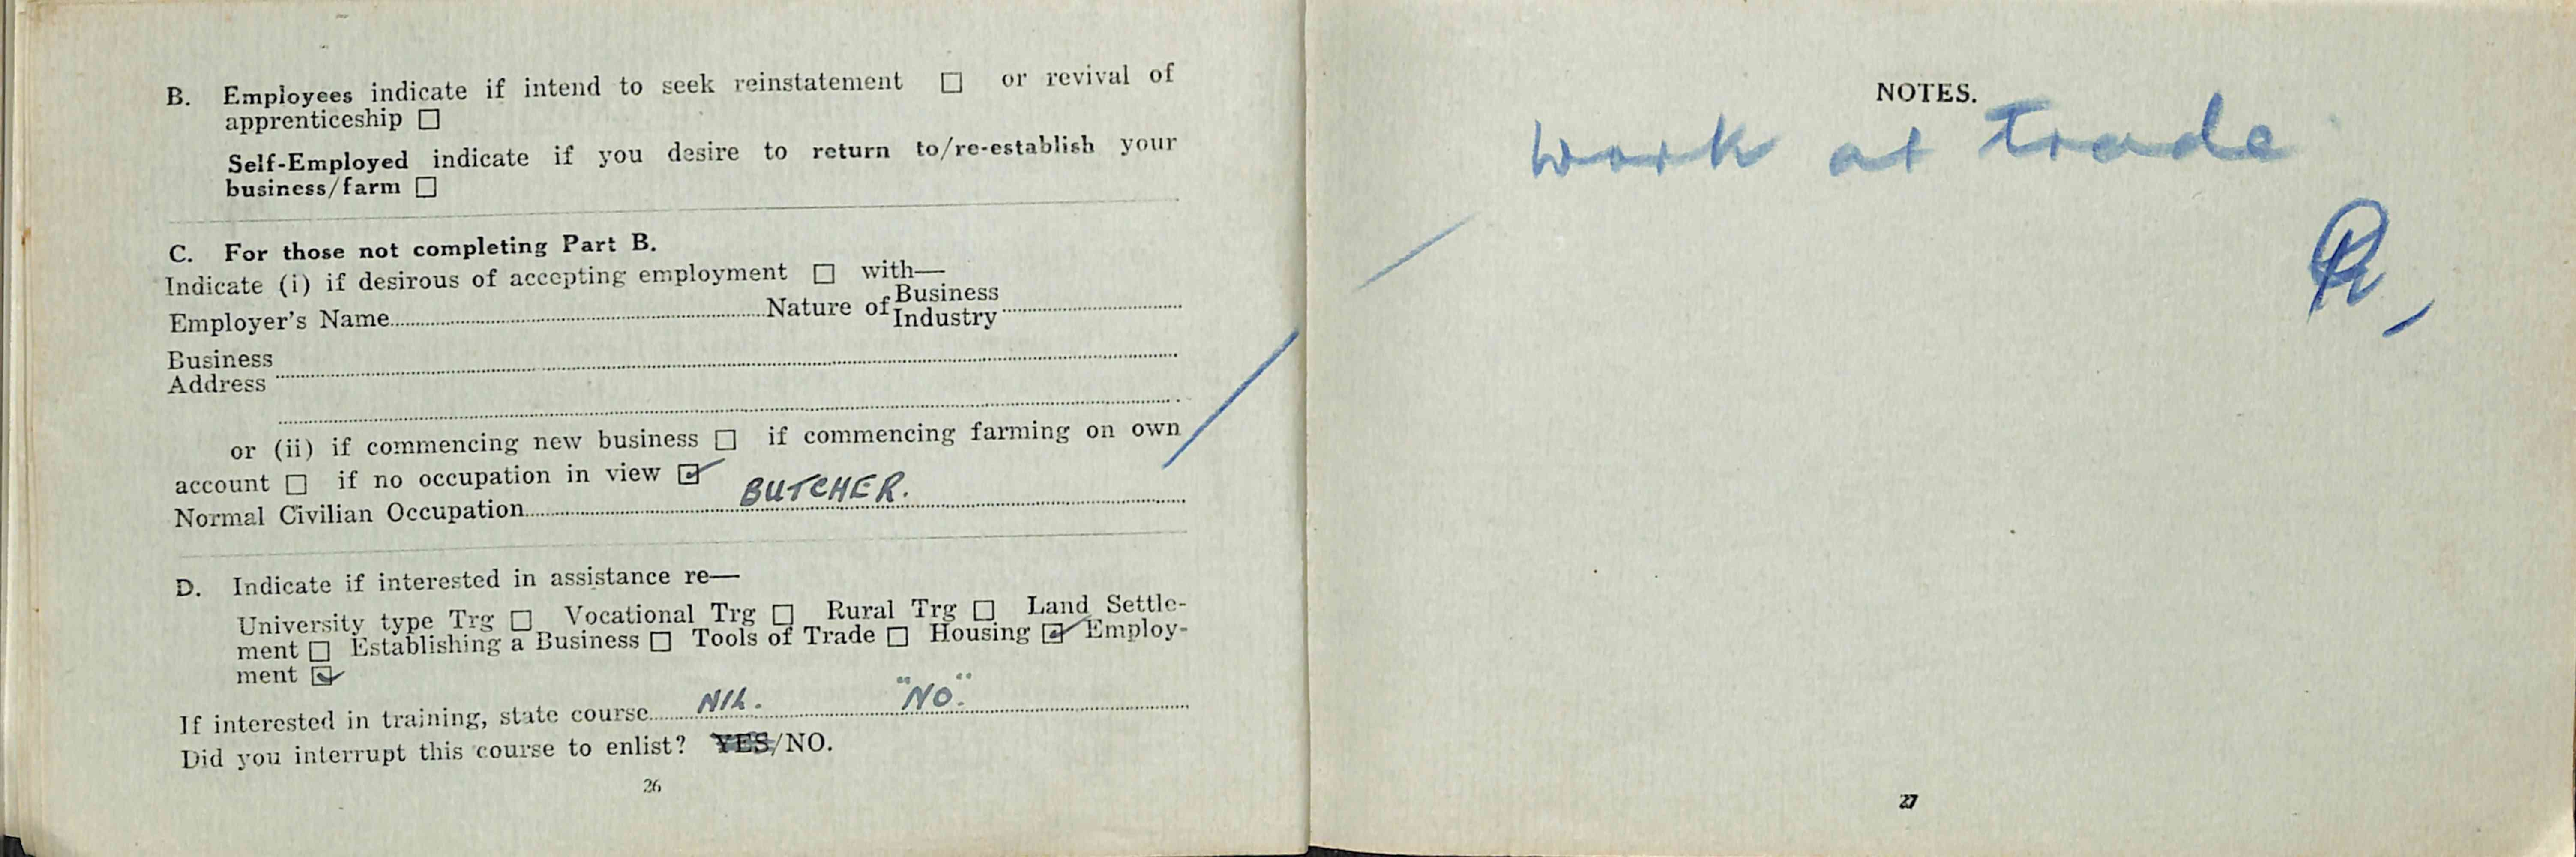 B. Employees indicate if intend to seek reinstatement ☐ or revival of
apprenticeship ☐
Self-Employed indicate if you desire to return to/re-establish your
business/farm ☐
C. For those not completing Part B.
Indicate (i) if desirous of accepting employment ☐ with—
Employer's Name Nature of Business
Industry
Business
Address
or (ii) if commencing new business ☐ if commencing farming on own
account ☐ if no occupation in view ☑
Normal Civilian Occupation BUTCHER.
D. Indicate if interested in assistance re—
University type Trg ☐ Vocational Trg ☐ Rural Trg ☐ Land Settle-
ment ☐ Establishing a Business ☐ Tools of Trade ☐ Housing ☑ Employ-
ment ☑
If interested in training, state course NIL. "NO".
Did you interrupt this course to enlist? YES/NO.
26
NOTES.
Work at trade
27